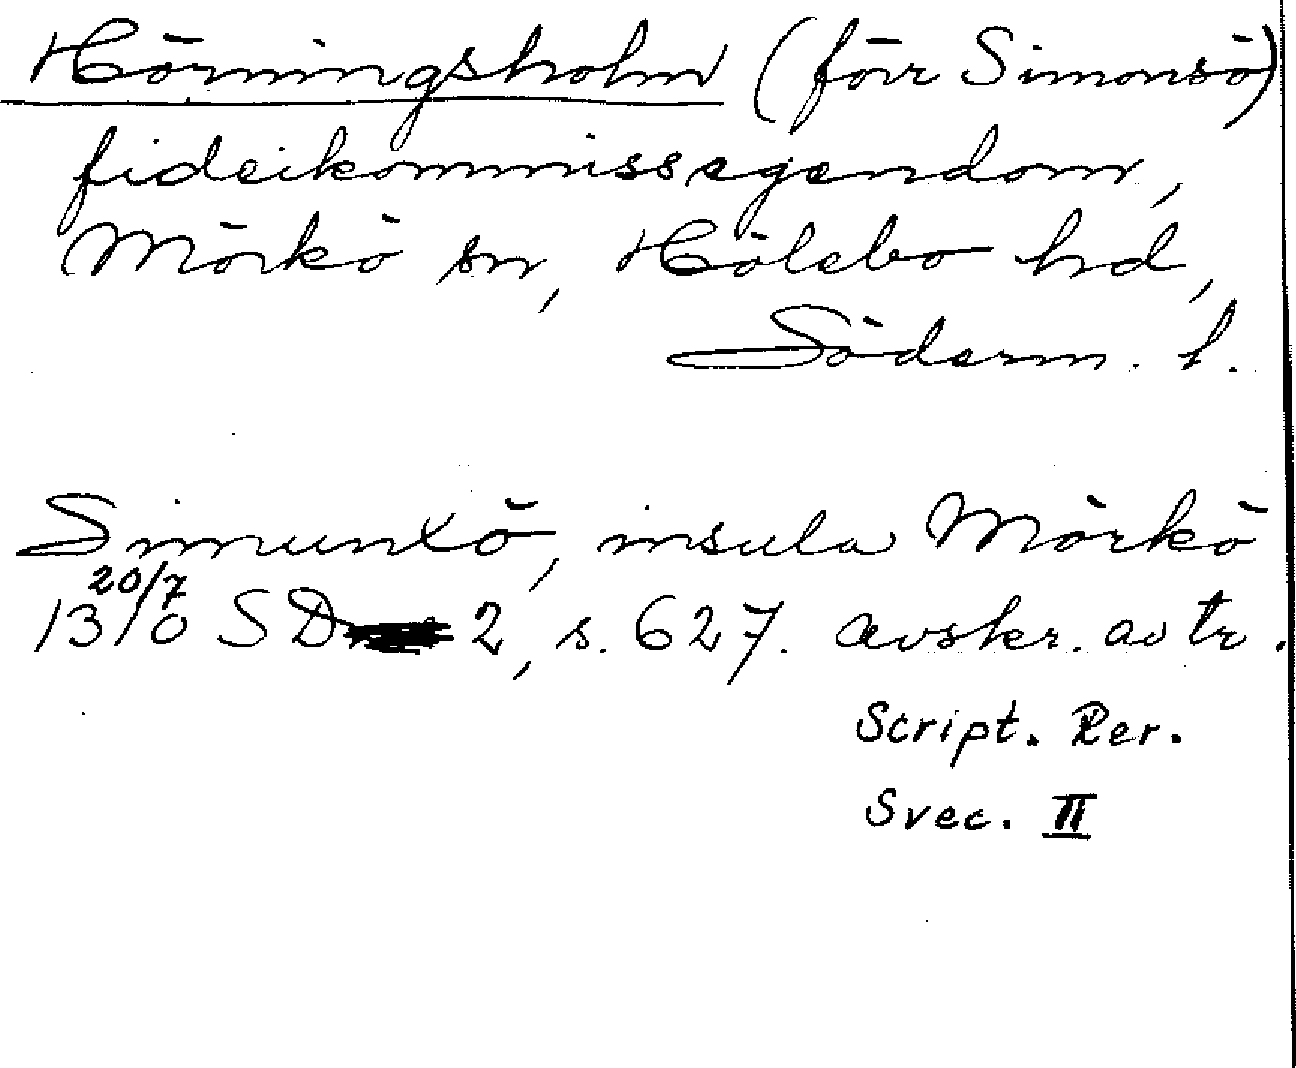 Hörningsholm (förr Simonsö)
fideikommissegendom,
Mörkö sn, Hölebo hd,
Söderm. l.
Simunxö, insula Mörkö
20/7
1310 SD 2, s. 627. avskr. av tr.
Script. Rer.
Svec. II